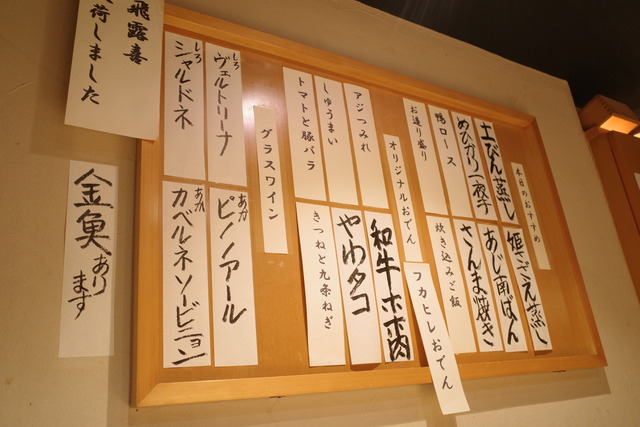 本日のおすすめ
土びん蒸し
姫さざえ蒸し
めひかり一夜干
あじ南ばん
鴨ロース
さんま焼き
お造り盛り
炊き込みご飯
オリジナルおでん
フカヒレおでん
アジつみれ
和牛ホホ肉
しゅうまい
やわタコ
トマトと豚バラ
きつねと九条ねぎ
グラスワイン
しろ
ヴェルトリーナ
あか
ピノノアール
しろ
シャルドネ
あか
カベルネソービニョン
飛露喜
荷しました
金魚あります